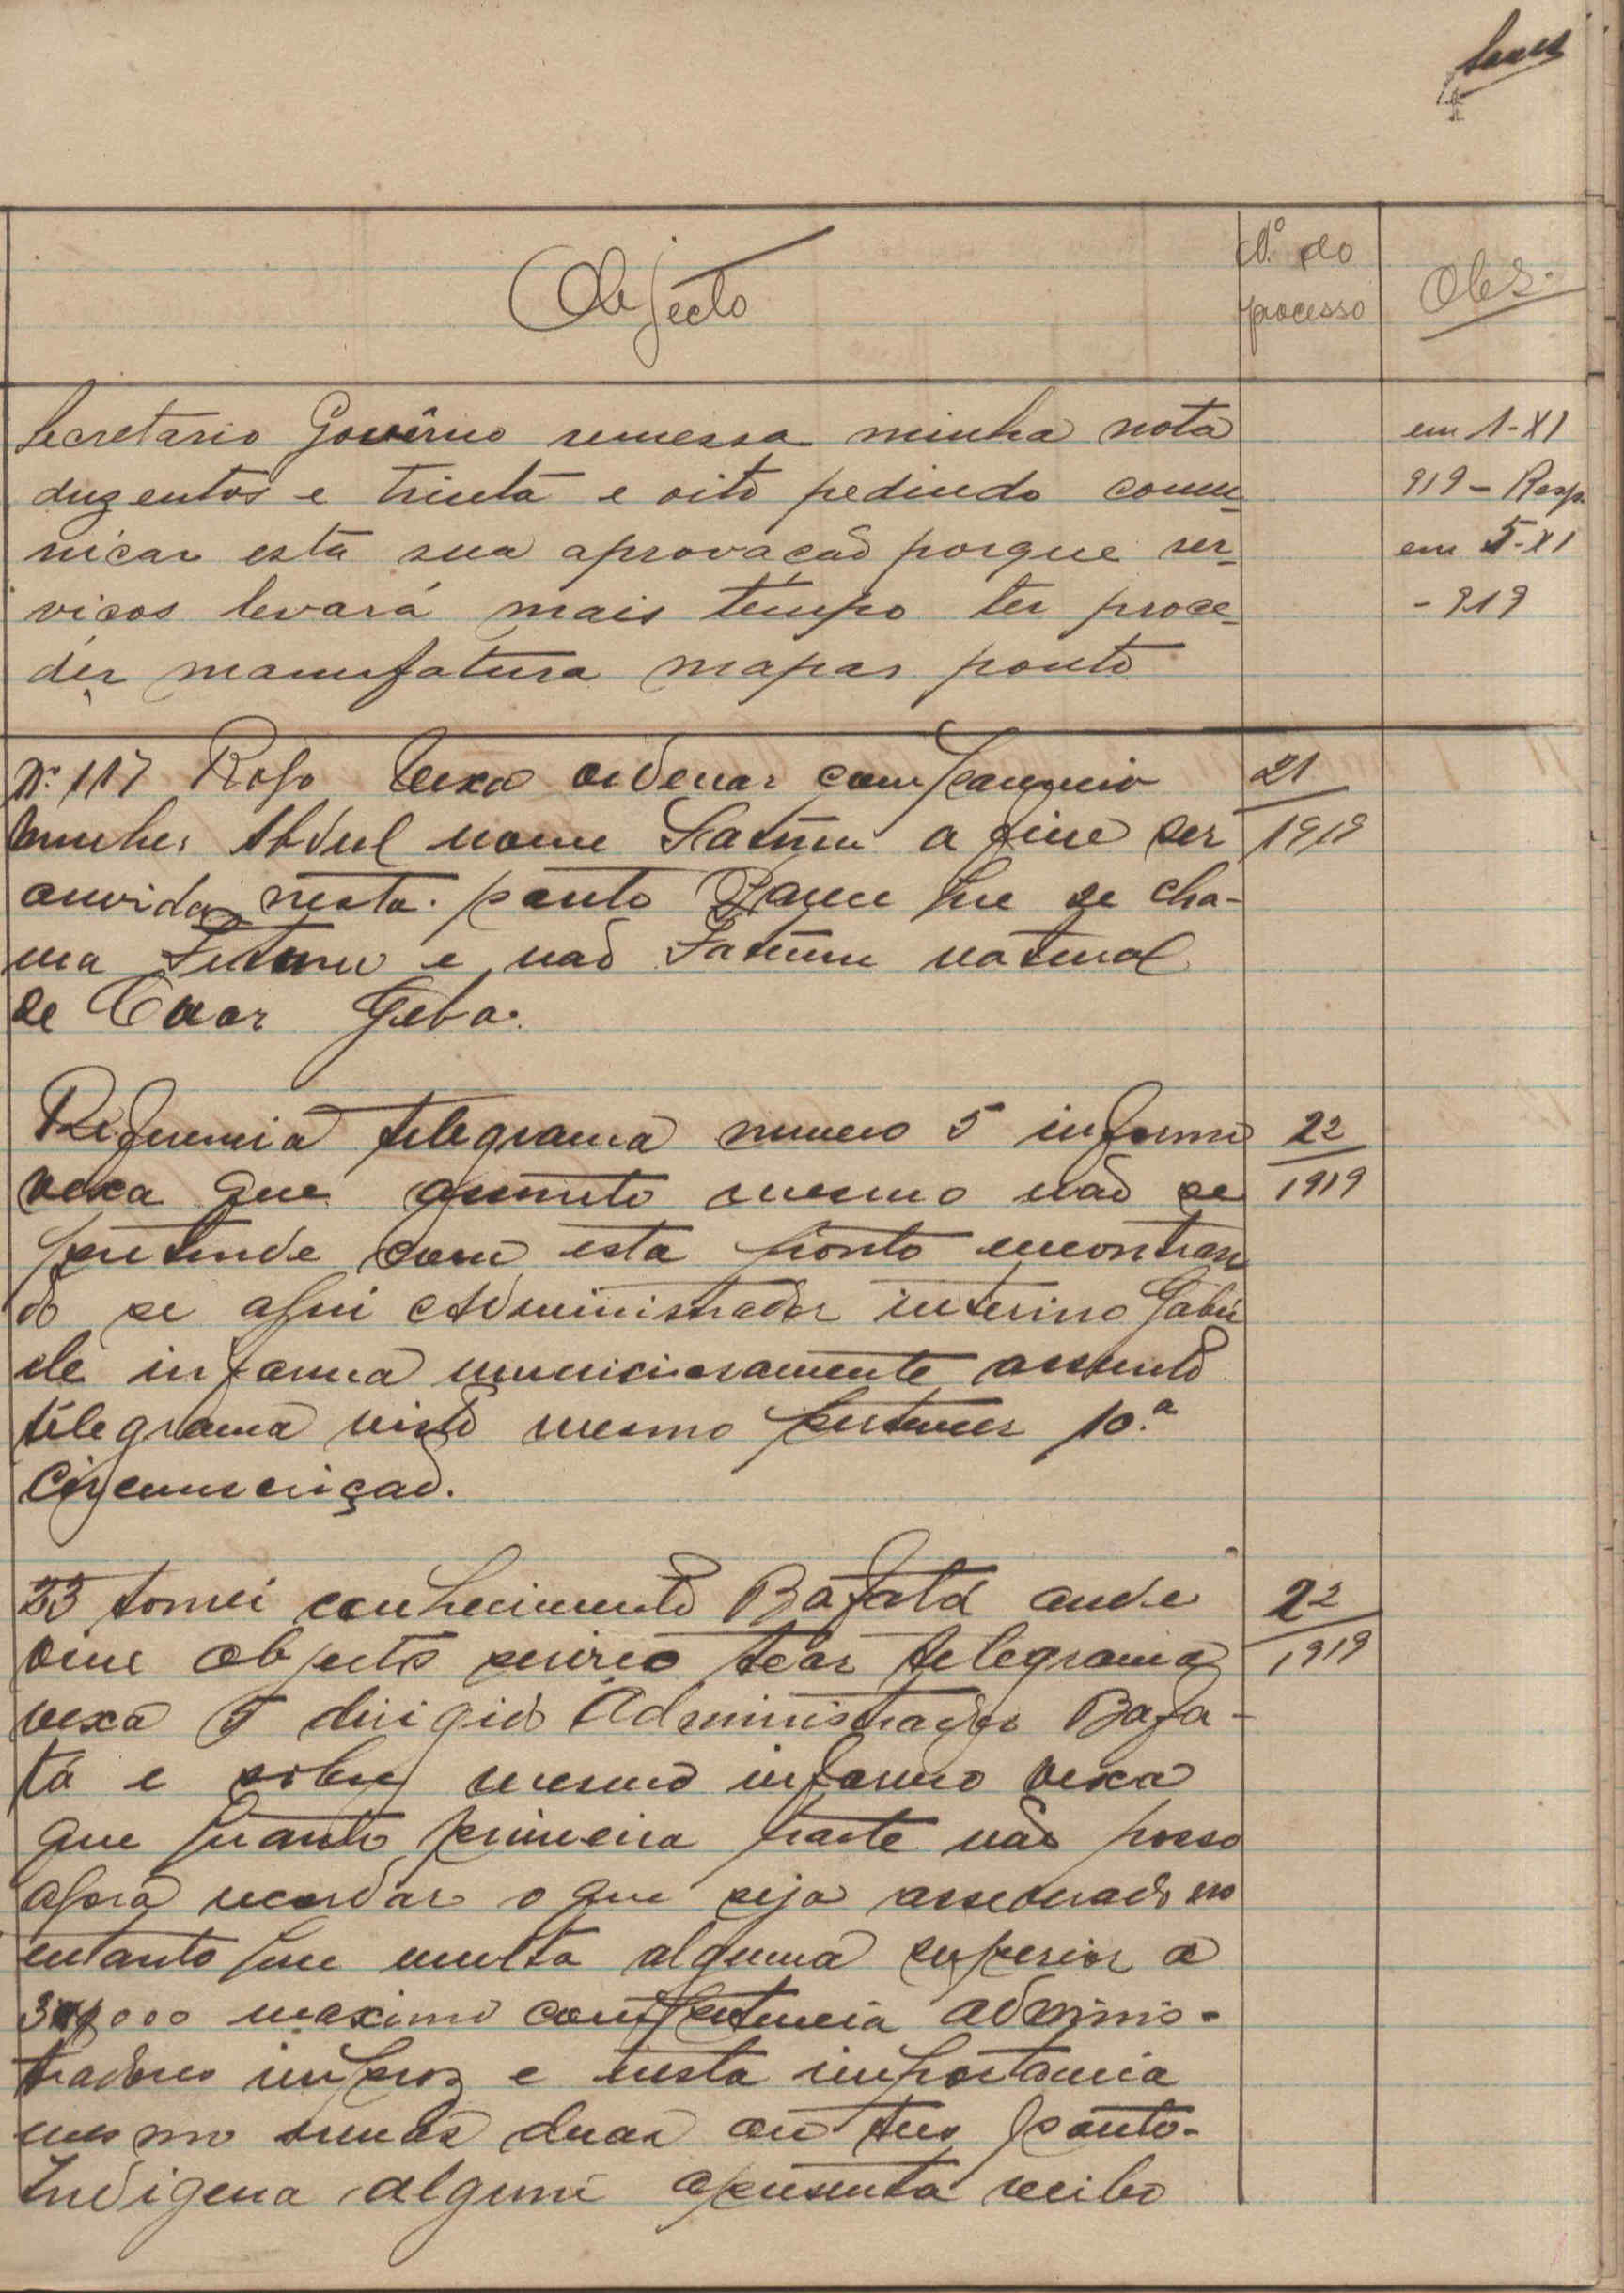 Objecto
Nº do
processo
Obs.
Secretario Govêrno remessa minha nota
duzentos e trinta e oito pedindo comu-
nicar esta sua aprovação porque ser-
viços levará mais tempo ter proce-
der manufatura mapas ponto
em 1-XI
919 - Resp.
em 5-XI
- 919
Nº 117 Rogo Vexa ordenar
mulher Abdul nome Fatumu a fim ser
ouvida nesta. ponto que se cha-
ma e não Fatumu natural
de Geba.
21
1919
Referencia telegrama numero 5 informo
vexa que assunto mesmo não se
pretende com esta ponto encontran
do se aqui Administrador interino Gabú
ele informa minuciosamente assunto
telegrama visto mesmo pertencer 10.ª
Circunscrição.
22
1919
23 tomei conhecimento Bafatá onde
vim objecto serviço telegrama
vexa 5 dirigido Administração Bafa-
tá e sobre mesmo informo vexa
que quanto primeira parte não posso
agora recordar o que seja no
entanto que multa alguma superior a
maximo competencia adminis-
tradores impoz e nesta importancia
mesmo duas ou tres ponto.
Indigena algum apresenta recibo
22
1919